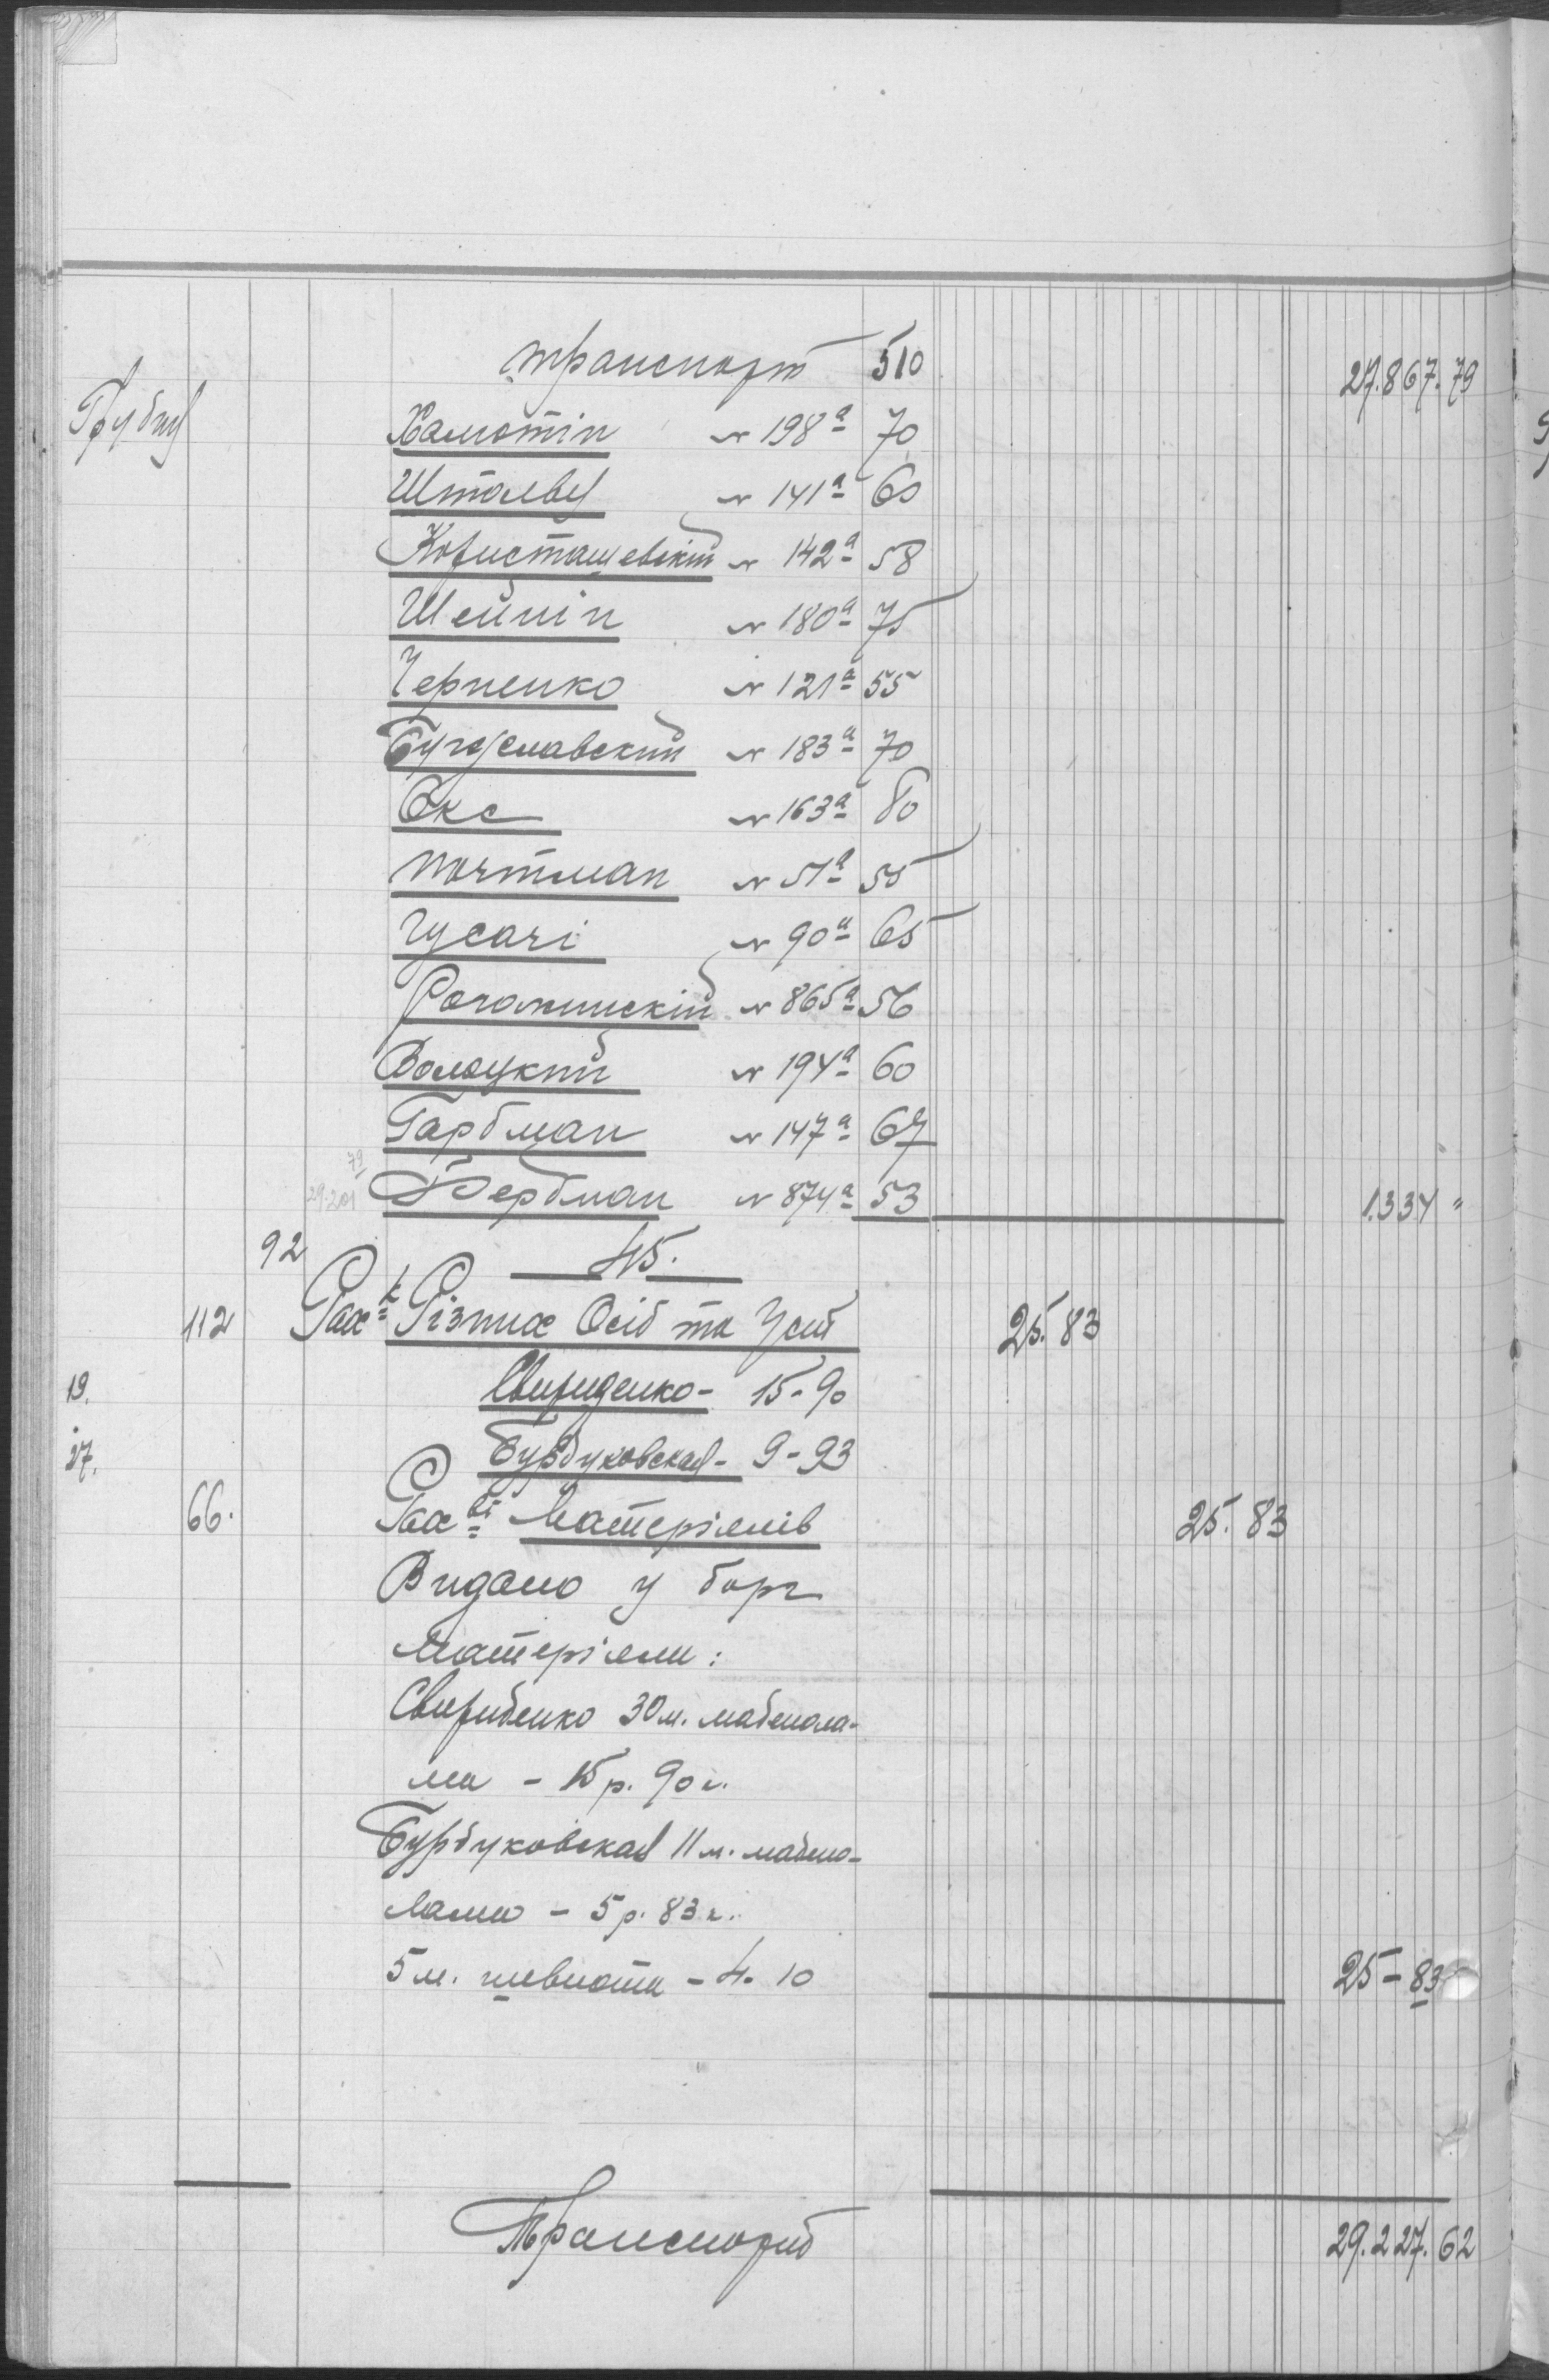 транспорт 510 27.867.79
Грудня
Хамотін № 198а 70
Штольвя № 141а 60
Користашевскій № 142а 58
Шейнін № 180а 75
Черненко № 121а 55
Бугославский № 183а 70
Окс № 163а 80
Портман № 51а 55
Гусачі № 90а 65
Рогожинскій № 865а 56
Волоцкий № 194а 60
Гарбман № 147а 67
79
29.201 Фербман № 874а 53 1.334 "
92 45.
112 Рах-к Різних Осіб та Уст 25.83
19. Свириденко - 15-90
27. Бурдуковская - 9-93
66. Рах-ві Матеріялів 25.83
Видано у борг
матеріяли:
Свириденко 30 м. мадепола-
ма - 15 р. 90 к.
Бурдуковская 11 м. мадепо-
лама - 5 р. 83 к.
5 м. шевиота - 4. 10 25-83
Транспорт 29.227.62